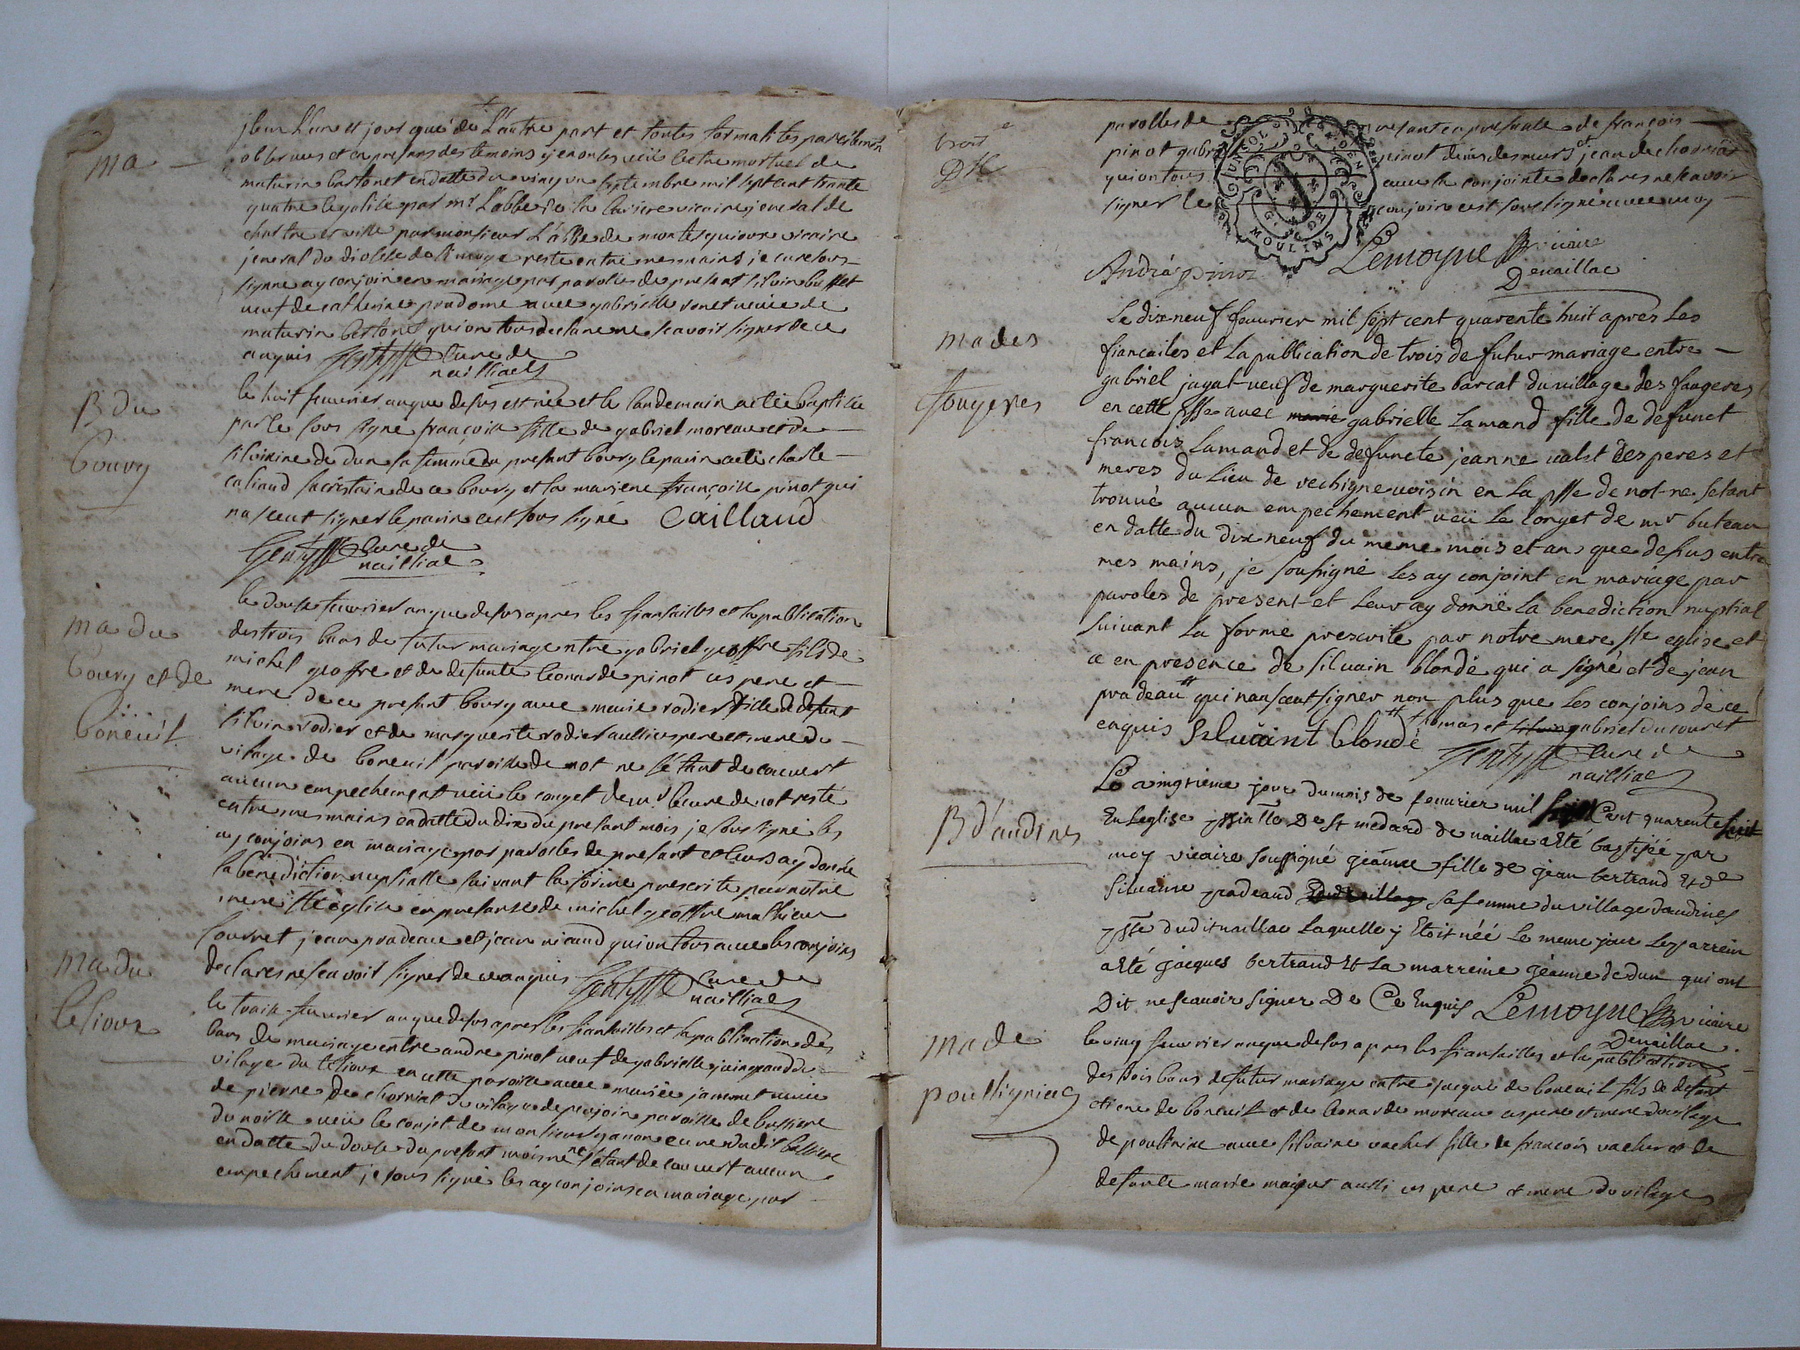 ma
jour l'un et jour que de l'autre part et toutes formalités
observees et en presans des temoins l'extre mortuel de
maturin bastonet en datte du vingt un septembre mil sept cent trante
quatre legalisé par mr l'abbe de la vicaire general de
par monsieur l'abbe de montesquioux vicaire
jeneral du diosese de limoge reste entre mes mains je cure sous
signe ay conjoin en mariage par paroles de presant silvin busset
veuf de catherine prudome avec gabrielle veuve de
maturin bastonet qui on tous declare ne scavoir signer de ce
anquis cure de
nailliac
B du
bourg
le huit feuvrier anque desus est née et le landemain a eté baptisée
par le sous signé françoise fille de gabriel moreau et de
silvine de dun sa femme du presant bourg le parin a eté charle
caliaud sacristain de ce bourg et la mariene françoise pinot qui
na sceut signer le parin cest sous signé Caillaud
cure de
nailliac
ma du
bourg et de
boneuil
le douse feuvrier anque desus apres les fiansailles et la publication
des trois bans de futur mariage entre gabriel geoffre fils de
michel geoffre et de defunte leonarde pinot ces pere et
mere de ce presant bourg avec marie rodier fille de defunt
silvin rodier et de marguerite rodier aussi ces pere et mere du
vilage de boneuil paroisse de not ne setant decouvert
aucun empechement veü le conget de mr le cure de not resté
entre mes mains en datte du dix du presant mois je sous signé les
ay conjoins en mariage par paroles de presant et leurs ay donné
la bénédiction nuptialle suivant la forme prescrite par notre
mere ste église en presanse de michel geoffre mathieu
couret jean pradeau et jean nicaud qui on tous avec les conjoins
declares ne scavoir signer de ce anquis cure de
nailliac
ma du
lesioux
le traise feuvrier anque desus apres les fiansailles et la publication des
bans de mariage entre andre pinot veuf de gabrielle du
vilage du lesioux en cette paroisse avec marie jammet veuve
de pierre de chorriat du vilage de paroisse de bussiere
veü le conjet de monsieur cure dudit bussiere
en datte du douse du presant mois ne s'etant decouvert aucun
empechement je sous signé les ay conjoins en mariage par
parolles de presant en presante de françois
pinot gabriel pinot jean de chorriat
qui on tous avec la conjointe declares ne scavoir
signer le conjoin cest sous signé avec moy
MOULINS
André pinot Lemoyne vicaire
De naillac
ma des
fougeres
Le dix neuf feuvrier mil sept cent quarente huit apres les
fiancailes et la publication de trois de futur mariage entre
gabriel jayat veuf de marguerite barcat du village des faugeres
en cette psse avec marie gabrielle Lamand fille de defunct
francois Lamand et de defuncte jeanne ses peres et
meres du Lieu de vechigne voisin en la psse de not ne setant
trouvé aucun empechement veü le conget de mr buteau
en datte du dix neuf du meme mois et an que desus entre
mes mains, je soussigné les ay conjoint en mariage par
paroles de present et leur ay donné la benediction nuptial
suivant la forme prescrite par notre mere ste eglise et
ce en presence de silvain blondé qui a signé et de jean
pradeau qui n'an sceut signer non plus que les conjoins de ce
thomas et gabriel du couret
enquis Silvaint blondé cure de
nailliac
B d'audines
Le vingtieme jour du mois de feuvrier mil sept Cent quarente huit
En Leglise De st medard de naillac a Eté baptisée par
moy vicaire soussigné jeanne fille de jean bertrand Et de
silvaine pradeaud sa femme du village daudines
psse dudit naillac Laquelle y Etoit néé Le meme jour Le parrein
a Eté jacques bertrand Et La marreine jeanne de dun qui ont
Dit ne scavoir signer De Ce Enquis Lemoyne vicaire
Denaillac
ma de
poulligniers
le ving feuvrier anque desus apres les fiansailles et la publication
des trois bans de futur mariage entre jacque de boneuil fils de defunt
etiene de boneuil et de leonarde moreau ces pere et mere du vilage
de avec silvaine vacher fille de francois vacher et de
defunte marie aussi ces pere et mere du vilage